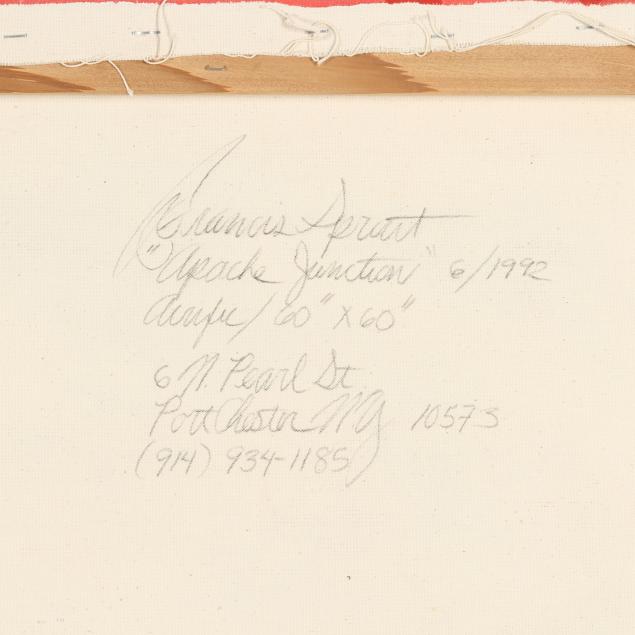 Francis Sprout
"Apache Junction" 6/1992
Acrylic / 60" x 60"
6 N. Pearl St
Port Chester NY 10573
(914) 934-1185